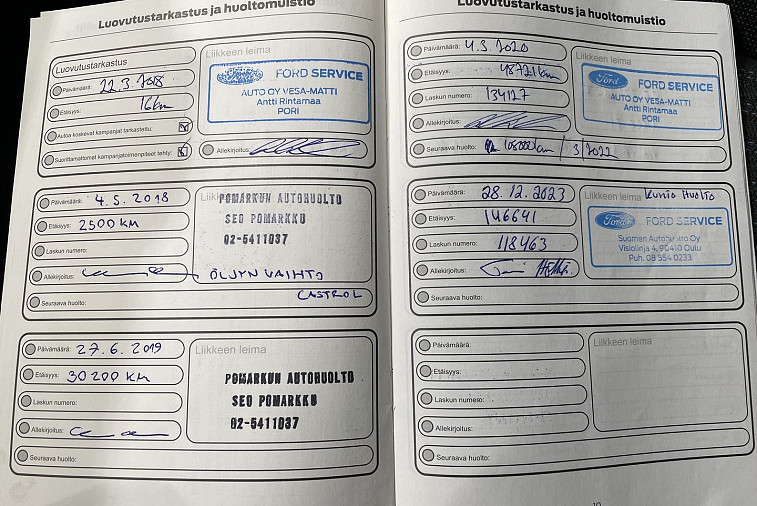 Luovutustarkastus ja huoltomuistio
Luovutustarkastus
Päivämäärä: 22.3.2018
Etäisyys: 16km
Autoa koskevat kampanjat tarkastettu:
Suorittamattomat kampanjatoimenpiteet tehty:
Liikkeen leima
Ford FORD SERVICE
AUTO OY VESA-MATTI
Antti Rintamaa
PORI
Allekirjoitus:
Päivämäärä: 4.5.2018
Etäisyys: 2500 KM
Laskun numero:
Allekirjoitus:
Seuraava huolto:
POMARKUN AUTOHUOLTO
SEO POMARKKU
02-5411037
ÖLJYN VAIHTO
CASTROL
Päivämäärä: 27.6.2019
Etäisyys: 30200 KM
Laskun numero:
Allekirjoitus:
Seuraava huolto:
Liikkeen leima
POMARKUN AUTOHUOLTO
SEO POMARKKU
02-5411037
Luovutustarkastus ja huoltomuistio
Päivämäärä: 4.3.2020
Etäisyys: 48721km
Laskun numero: 134127
Allekirjoitus:
Seuraava huolto: 105000km / 3/2022
Liikkeen leima
Ford FORD SERVICE
AUTO OY VESA-MATTI
Antti Rintamaa
PORI
Päivämäärä: 28.12.2023
Etäisyys: 146641
Laskun numero: 118463
Allekirjoitus:
Seuraava huolto:
Liikkeen leima Kunto Huolto
Ford FORD SERVICE
Suomen Autohuolto Oy
Visiolinja 4, 90410 Oulu
Puh. 08 554 0233
Päivämäärä:
Etäisyys:
Laskun numero:
Allekirjoitus:
Seuraava huolto:
Liikkeen leima